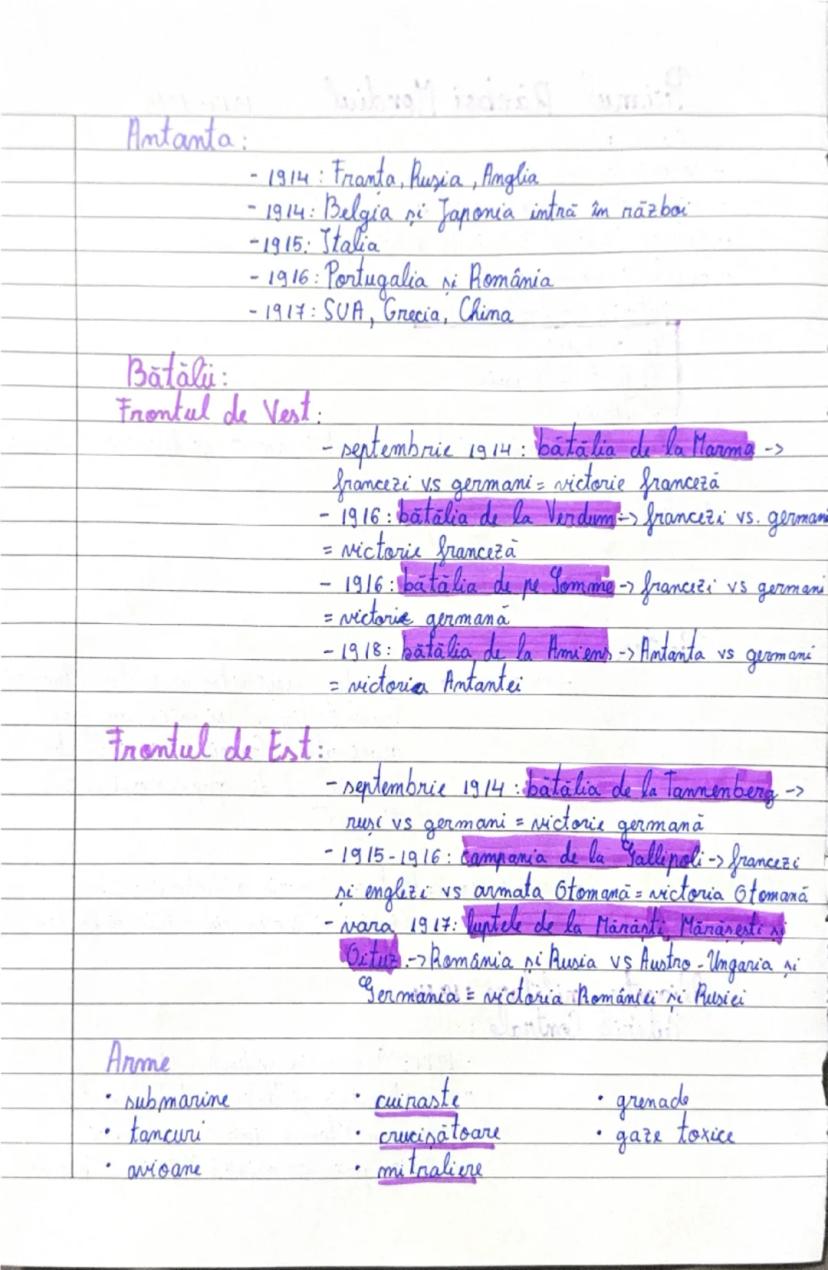 Antanta:
- 1914: Franța, Rusia, Anglia
- 1914: Belgia și Japonia intră în război
- 1915: Italia
- 1916: Portugalia și România
- 1917: SUA, Grecia, China
Bătălii:
Frontul de Vest:
- septembrie 1914: bătălia de la Marma ->
francezi vs germani = victorie franceză
- 1916: bătălia de la Verdum -> francezi vs. germani
= victorie franceză
- 1916: bătălia de pe Somme -> francezi vs germani
= victorie germană
- 1918: bătălia de la Amiens -> Antanta vs germani
= victoria Antantei
Frontul de Est:
- septembrie 1914: bătălia de la Tannenberg ->
ruși vs germani = victorie germană
- 1915-1916: campania de la Gallipoli -> francezi
și englezi vs armata Otomană = victoria Otomană
- vara 1917: luptele de la Mărăști, Mărășești și
Oituz -> România și Rusia vs Austro-Ungaria și
Germania = victoria României și Rusiei
Arme
• submarine • cuiraste • grenade
• tancuri • crucișătoare • gaze toxice
• avioane • mitraliere